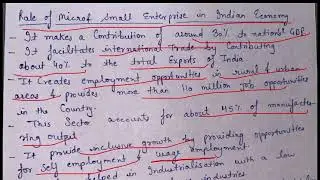 Role of Micro & Small Enterprise in Indian Economy
- It makes a Contribution of around 30% to nation's GDP
- It facilitates international Trade by Contributing
about 40% to the total Exports of India
- It Creates employment opportunities in rural & urban
areas & provides more than 110 million job opportunities
in the Country.
- This Sector accounts for about 45% of manufactu-
ring output
- It provide inclusive growth by providing opportunities
for self employment & wage employment.
helped in Industrialisation with a low
industries